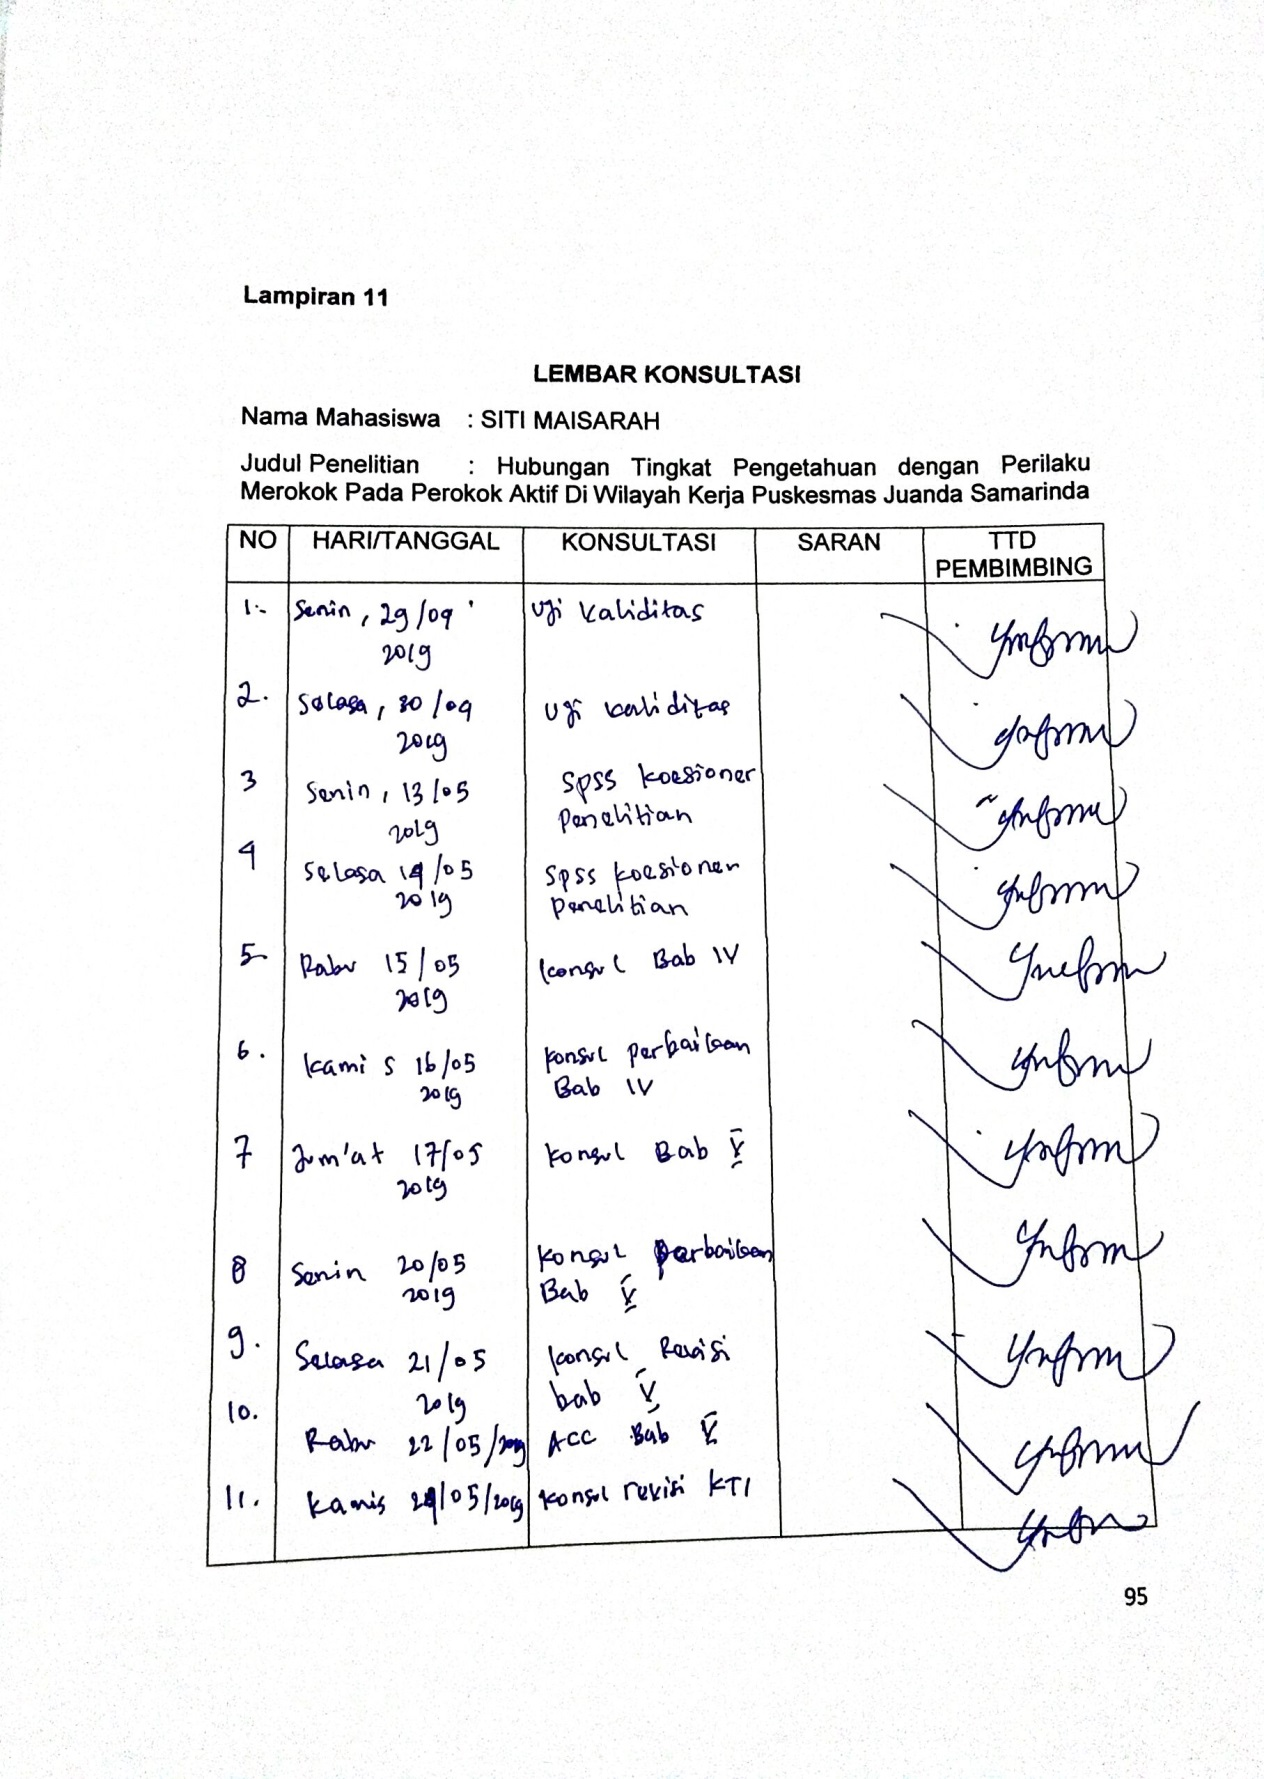 Lampiran 11
LEMBAR KONSULTASI
Nama Mahasiswa : SITI MAISARAH
Judul Penelitian : Hubungan Tingkat Pengetahuan dengan Perilaku
Merokok Pada Perokok Aktif Di Wilayah Kerja Puskesmas Juanda Samarinda
NO HARI/TANGGAL KONSULTASI SARAN TTD
PEMBIMBING
1. Senin, 29/04 Uji Validitas
2019
2. Selasa, 30/04 Uji Validitas
2019
3 Senin, 13/05 SPSS koesioner
2019 Penelitian
4 Selasa 14/05 SPSS koesioner
2019 Penelitian
5. Rabu 15/05 Konsul Bab IV
2019
6. Kamis 16/05 Konsul perbaikan
2019 Bab IV
7 Jum'at 17/05 Konsul Bab V
2019
8 Senin 20/05 Konsul perbaikan
2019 Bab V
9. Selasa 21/05 Konsul Revisi
2019 bab V
10. Rabu 22/05/2019 ACC Bab V
11. Kamis /05/2019 Konsul revisi KTI
95